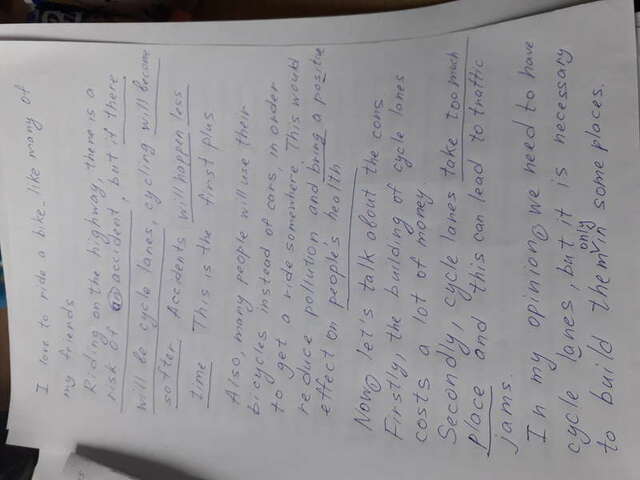 I love to ride a bike like many of
my friends
Riding on the highway there is a
risk of accident, but if there
will be cycle lanes, cycling will become
safter. Accidents will happen less
time This is the first plus
Also, many people will use their
bicycles instead of cars in order
to get a ride somewhere This would
reduce pollution and bring a positive
effect on peoples health
Now, let's talk about the cons
Firstly, the building of cycle lanes
costs a lot of money
Secondly, cycle lanes take too much
place and this can lead to traffic
jams.
In my opinion, we need to have
cycle lanes, but it is necessary
to build them only in some places.